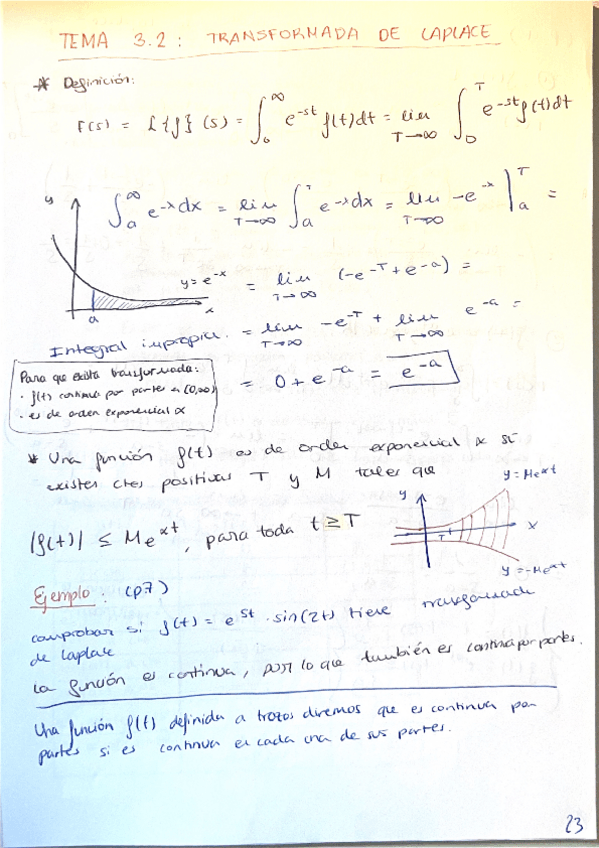 TEMA 3.2: TRANSFORMADA DE LAPLACE
* Definición:
F(s) = L{f}(s) = ∫₀^∞ e^-st f(t)dt = lim T→∞ ∫₀^T e^-st f(t)dt
∫ₐ^∞ e^-x dx = lim T→∞ ∫ₐ^T e^-x dx = lim T→∞ -e^-x |ₐ^T =
y
y = e^-x
x
a
= lim T→∞ (-e^-T + e^-a) =
Integral impropia. = lim T→∞ -e^-T + lim T→∞ e^-a =
= 0 + e^-a = e^-a
Para que exista transformada:
· f(t) continua por partes en (0,∞)
· es de orden exponencial α
* Una función f(t) es de orden exponencial α si
existen ctes positivas T y M tales que
|f(t)| ≤ Me^αt, para toda t ≥ T
y = Me^αt
y
x
T
y = -Me^αt
Ejemplo: (p7)
comprobar si f(t) = e^5t · sin(2t) tiene transformada
de Laplace
La función es continua, por lo que también es continua por partes.
Una función f(t) definida a trozos diremos que es continua por
partes si es continua en cada una de sus partes.
23